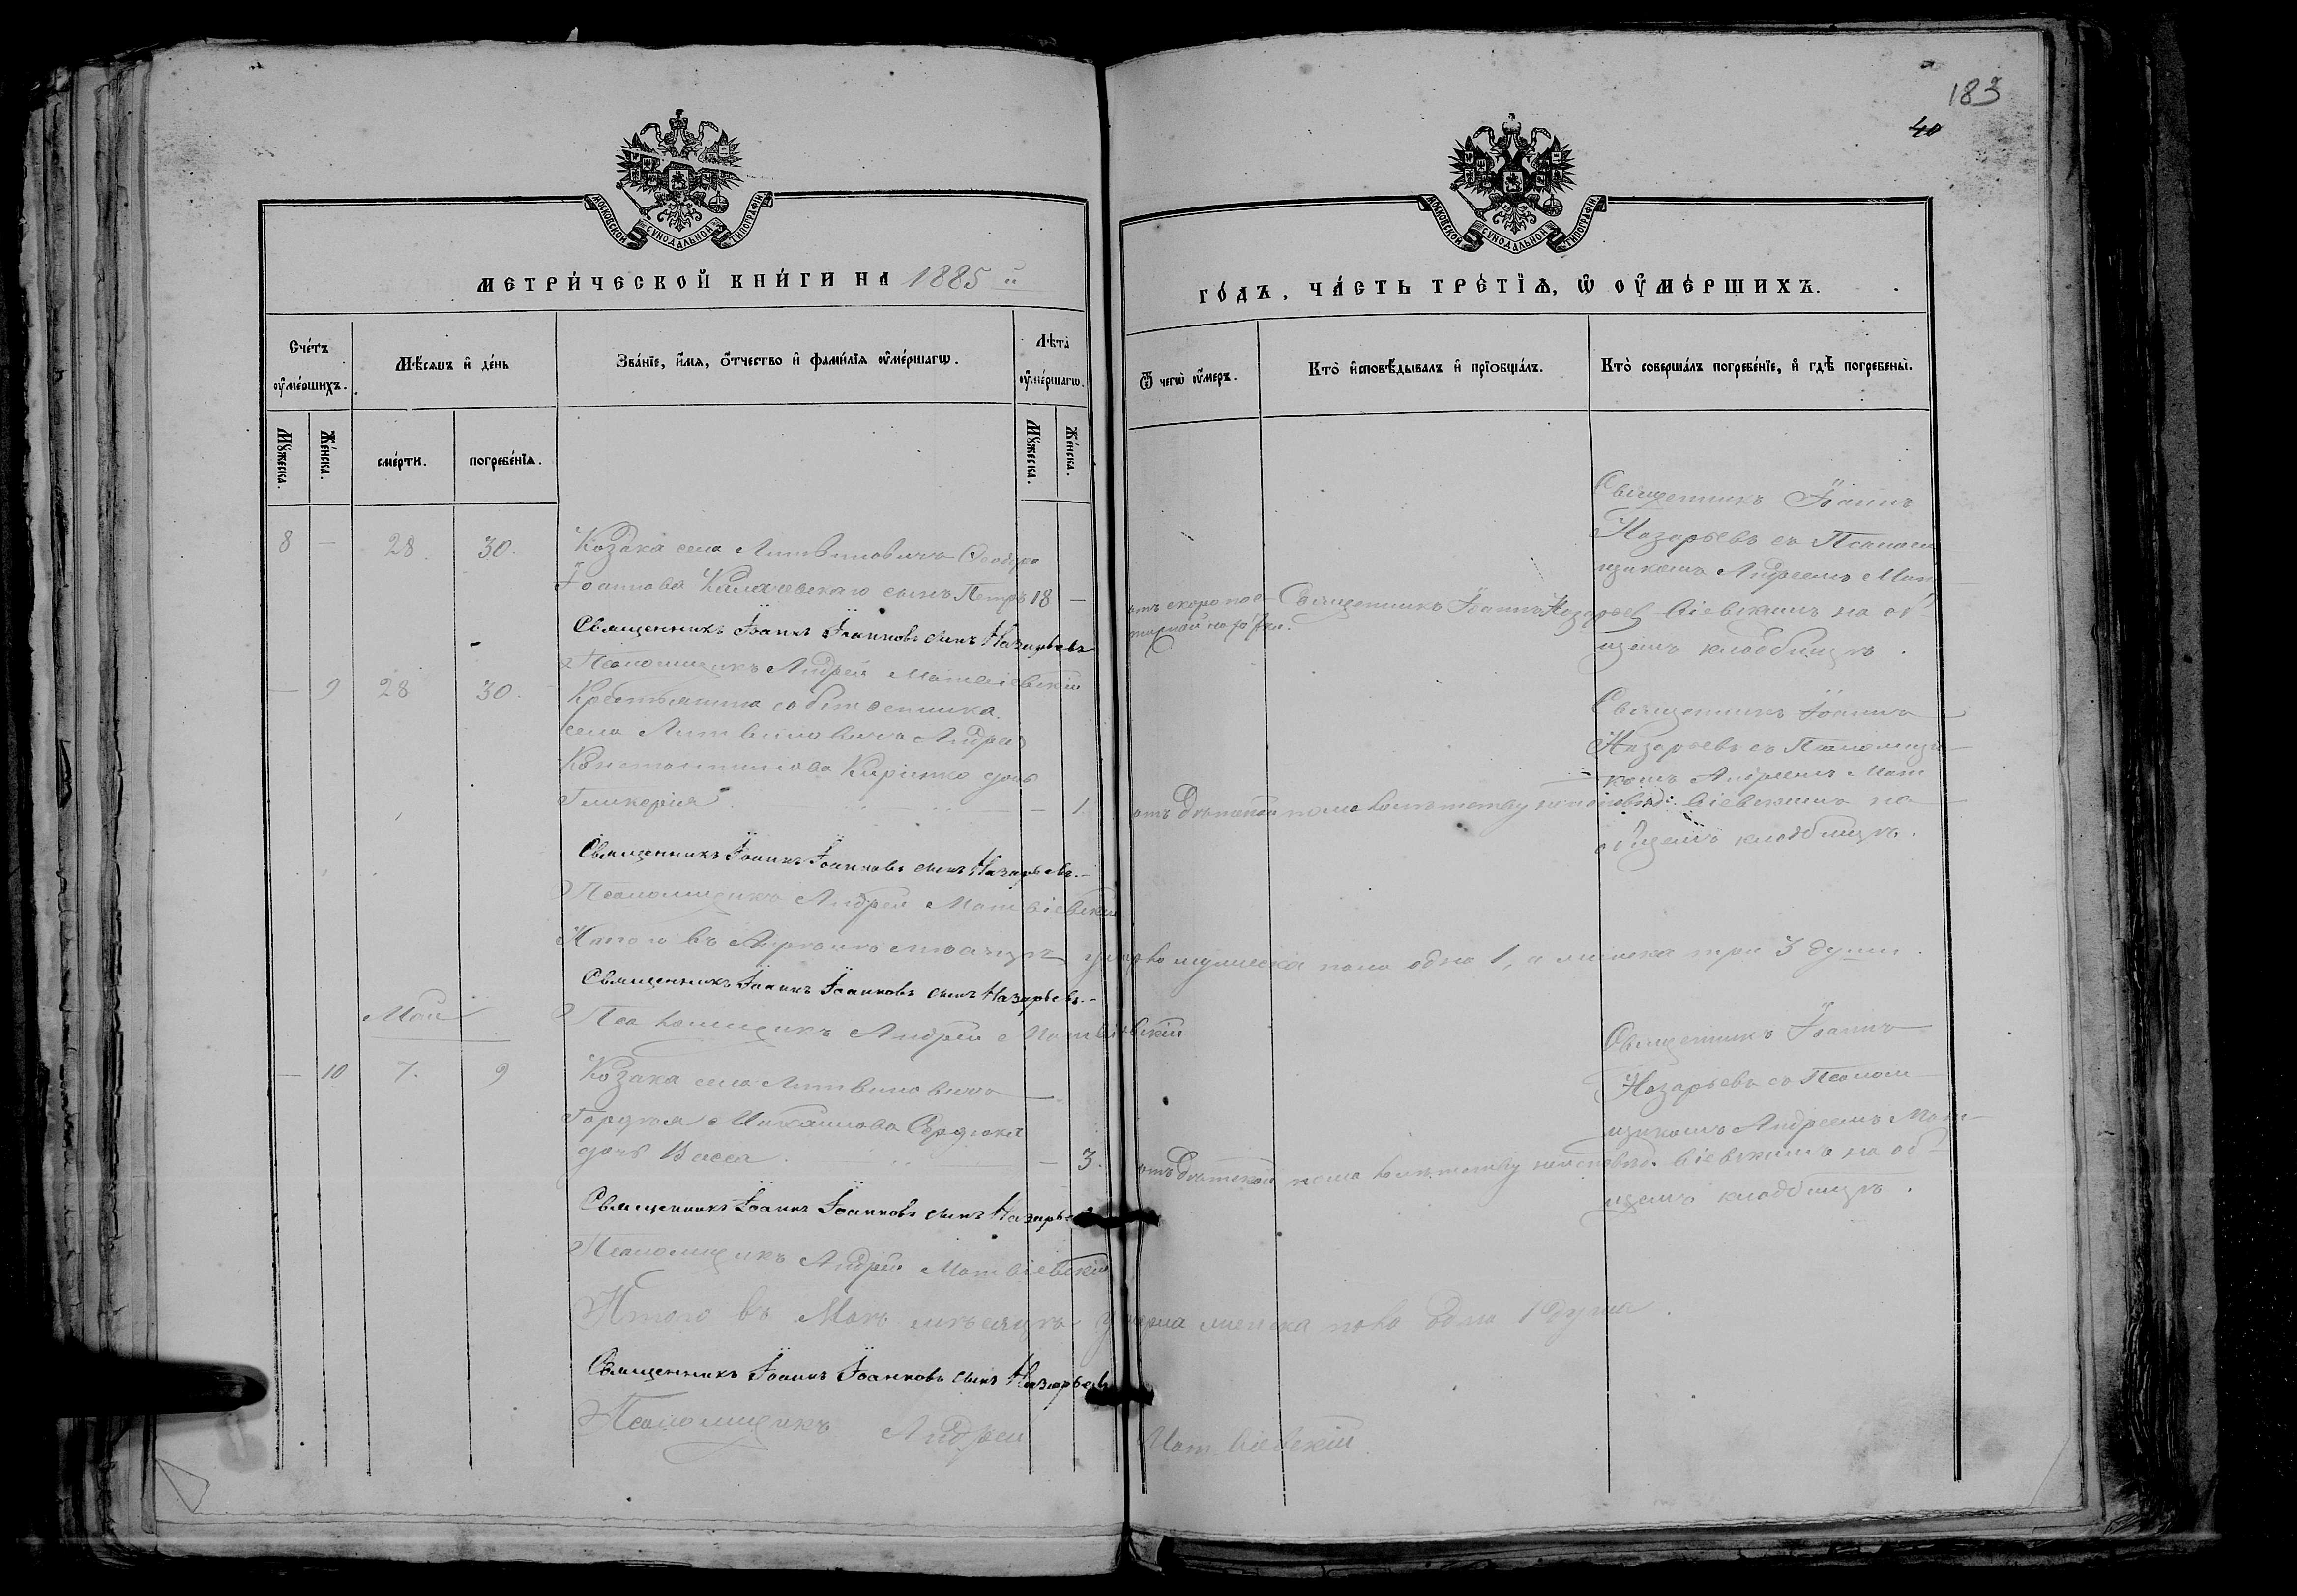 183
40
МОСКОВСКОЙ СУНОДАЛЬНОЙ ТИПОГРАФІИ
МОСКОВСКОЙ СУНОДАЛЬНОЙ ТИПОГРАФІИ
МЕТРИ́ЧЕСКОЙ КНИ́ГИ НА 1885 й
ГО́ДЪ, ЧА́СТЬ ТРЕ́ТІѦ, Ѡ ОУ҆МЕ́РШИХЪ.
Сче́тъ оу҆ме́ршихъ.
Мѣ́сяцъ и҆ де́нь
Зва́нїе, и҆́мя, ѻ҆́тчество и҆ фами́лїя оу҆ме́ршагѡ.
Лѣта̀ оу҆ме́ршагѡ.
Мꙋ́жеска.
Же́нска.
сме́рти.
погребе́нїѧ.
Мꙋ́жеска.
Же́нска.
Ѿ чегѡ̀ оу҆́меръ.
Кто̀ и҆сповѣ́дывалъ и҆ прїобща́лъ.
Кто̀ соверша́лъ погребе́нїе, и҆ гдѣ̀ погребены̀.
8 — 28. 30.
Козака села Литвиновичъ Ѳеодора
Іоаннова сынъ Петръ 18 —
отъ скоропос-
Священникъ Іоаннъ Назарьев
Священникъ Іоаннъ
Назарьевъ съ Псалом
щикомъ Андреемъ Мат
віевскимъ на об
щемъ кладбищѣ.
Священникъ Іоаннъ Іоанновъ сынъ Назарьевъ
Псаломщикъ Андрей Матвіевскій
— 9 28 30.
Крестьянина собственника
села Литвиновичъ Андрея
Константинова Кириенко дочь
Гликерія — 1.
отъ дѣтской по малолѣтству неисповѣд:
Священникъ Іоаннъ
Назарьевъ съ Псаломщи
комъ Андреемъ Мат
віевскимъ на
общемъ кладбищѣ.
Священникъ Іоаннъ Іоанновъ сынъ Назарьевъ.
Псаломщикъ Андрей Матвіевскій
Итого въ Апрѣлѣ мѣсяцѣ умерло мужеска пола одна 1, а женска три 3 души.
Священникъ Іоаннъ Іоанновъ сынъ Назарьевъ.
Псаломщикъ Андрей Матвіевскій
Май
— 10 7. 9
Козака села Литвиновичъ
Гордѣя Михаилова
дочь Васса. — 3.
отъ дѣтской по малолѣтству неисповѣд.
Священникъ Іоаннъ
Назарьевъ съ Псалом
щикомъ Андреемъ Мат
віевскимъ на об
щемъ кладбищѣ.
Священникъ Іоаннъ Іоанновъ сынъ Назарьевъ
Псаломщикъ Андрей Матвіевскій
Итого въ Маѣ мѣсяцѣ умерла женска пола одна 1 душа.
Священникъ Іоаннъ Іоанновъ сынъ Назарьевъ
Псаломщикъ Андрей Матвіевскій.